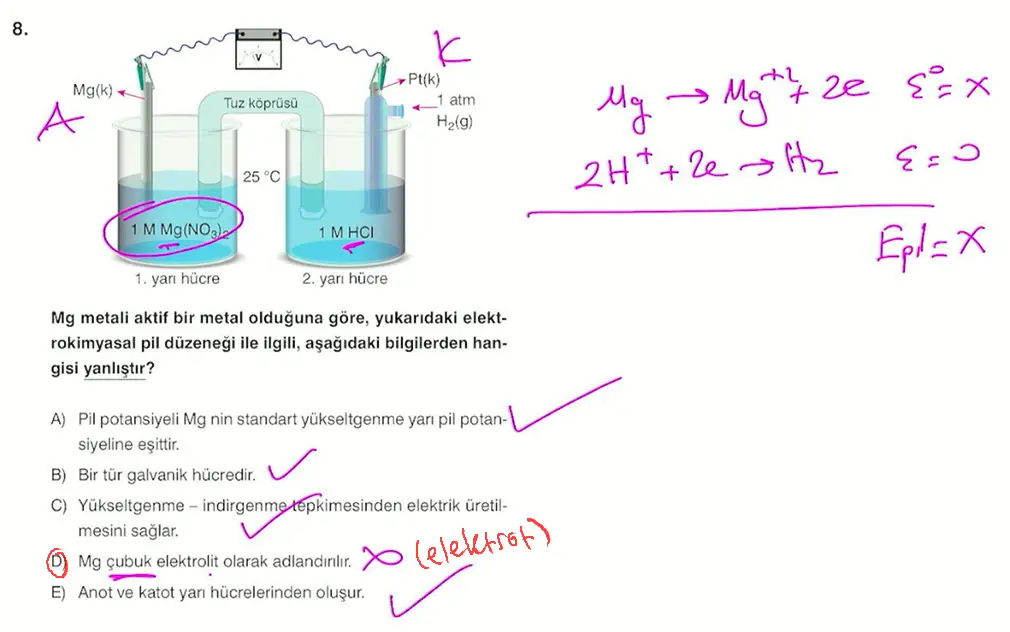 8.
V
K
Mg(k)
Pt(k)
A
Tuz köprüsü
1 atm
H₂(g)
25 °C
1 M Mg(NO₃)₂
1 M HCl
1. yarı hücre
2. yarı hücre
Mg → Mg⁺² + 2e ε° = x
2H⁺ + 2e → H₂ ε = 0
Epil = x
Mg metali aktif bir metal olduğuna göre, yukarıdaki elekt-
rokimyasal pil düzeneği ile ilgili, aşağıdaki bilgilerden han-
gisi yanlıştır?
A) Pil potansiyeli Mg nin standart yükseltgenme yarı pil potan-
siyeline eşittir.
B) Bir tür galvanik hücredir.
C) Yükseltgenme – indirgenme tepkimesinden elektrik üretil-
mesini sağlar.
D) Mg çubuk elektrolit olarak adlandırılır. (elektrot)
E) Anot ve katot yarı hücrelerinden oluşur.